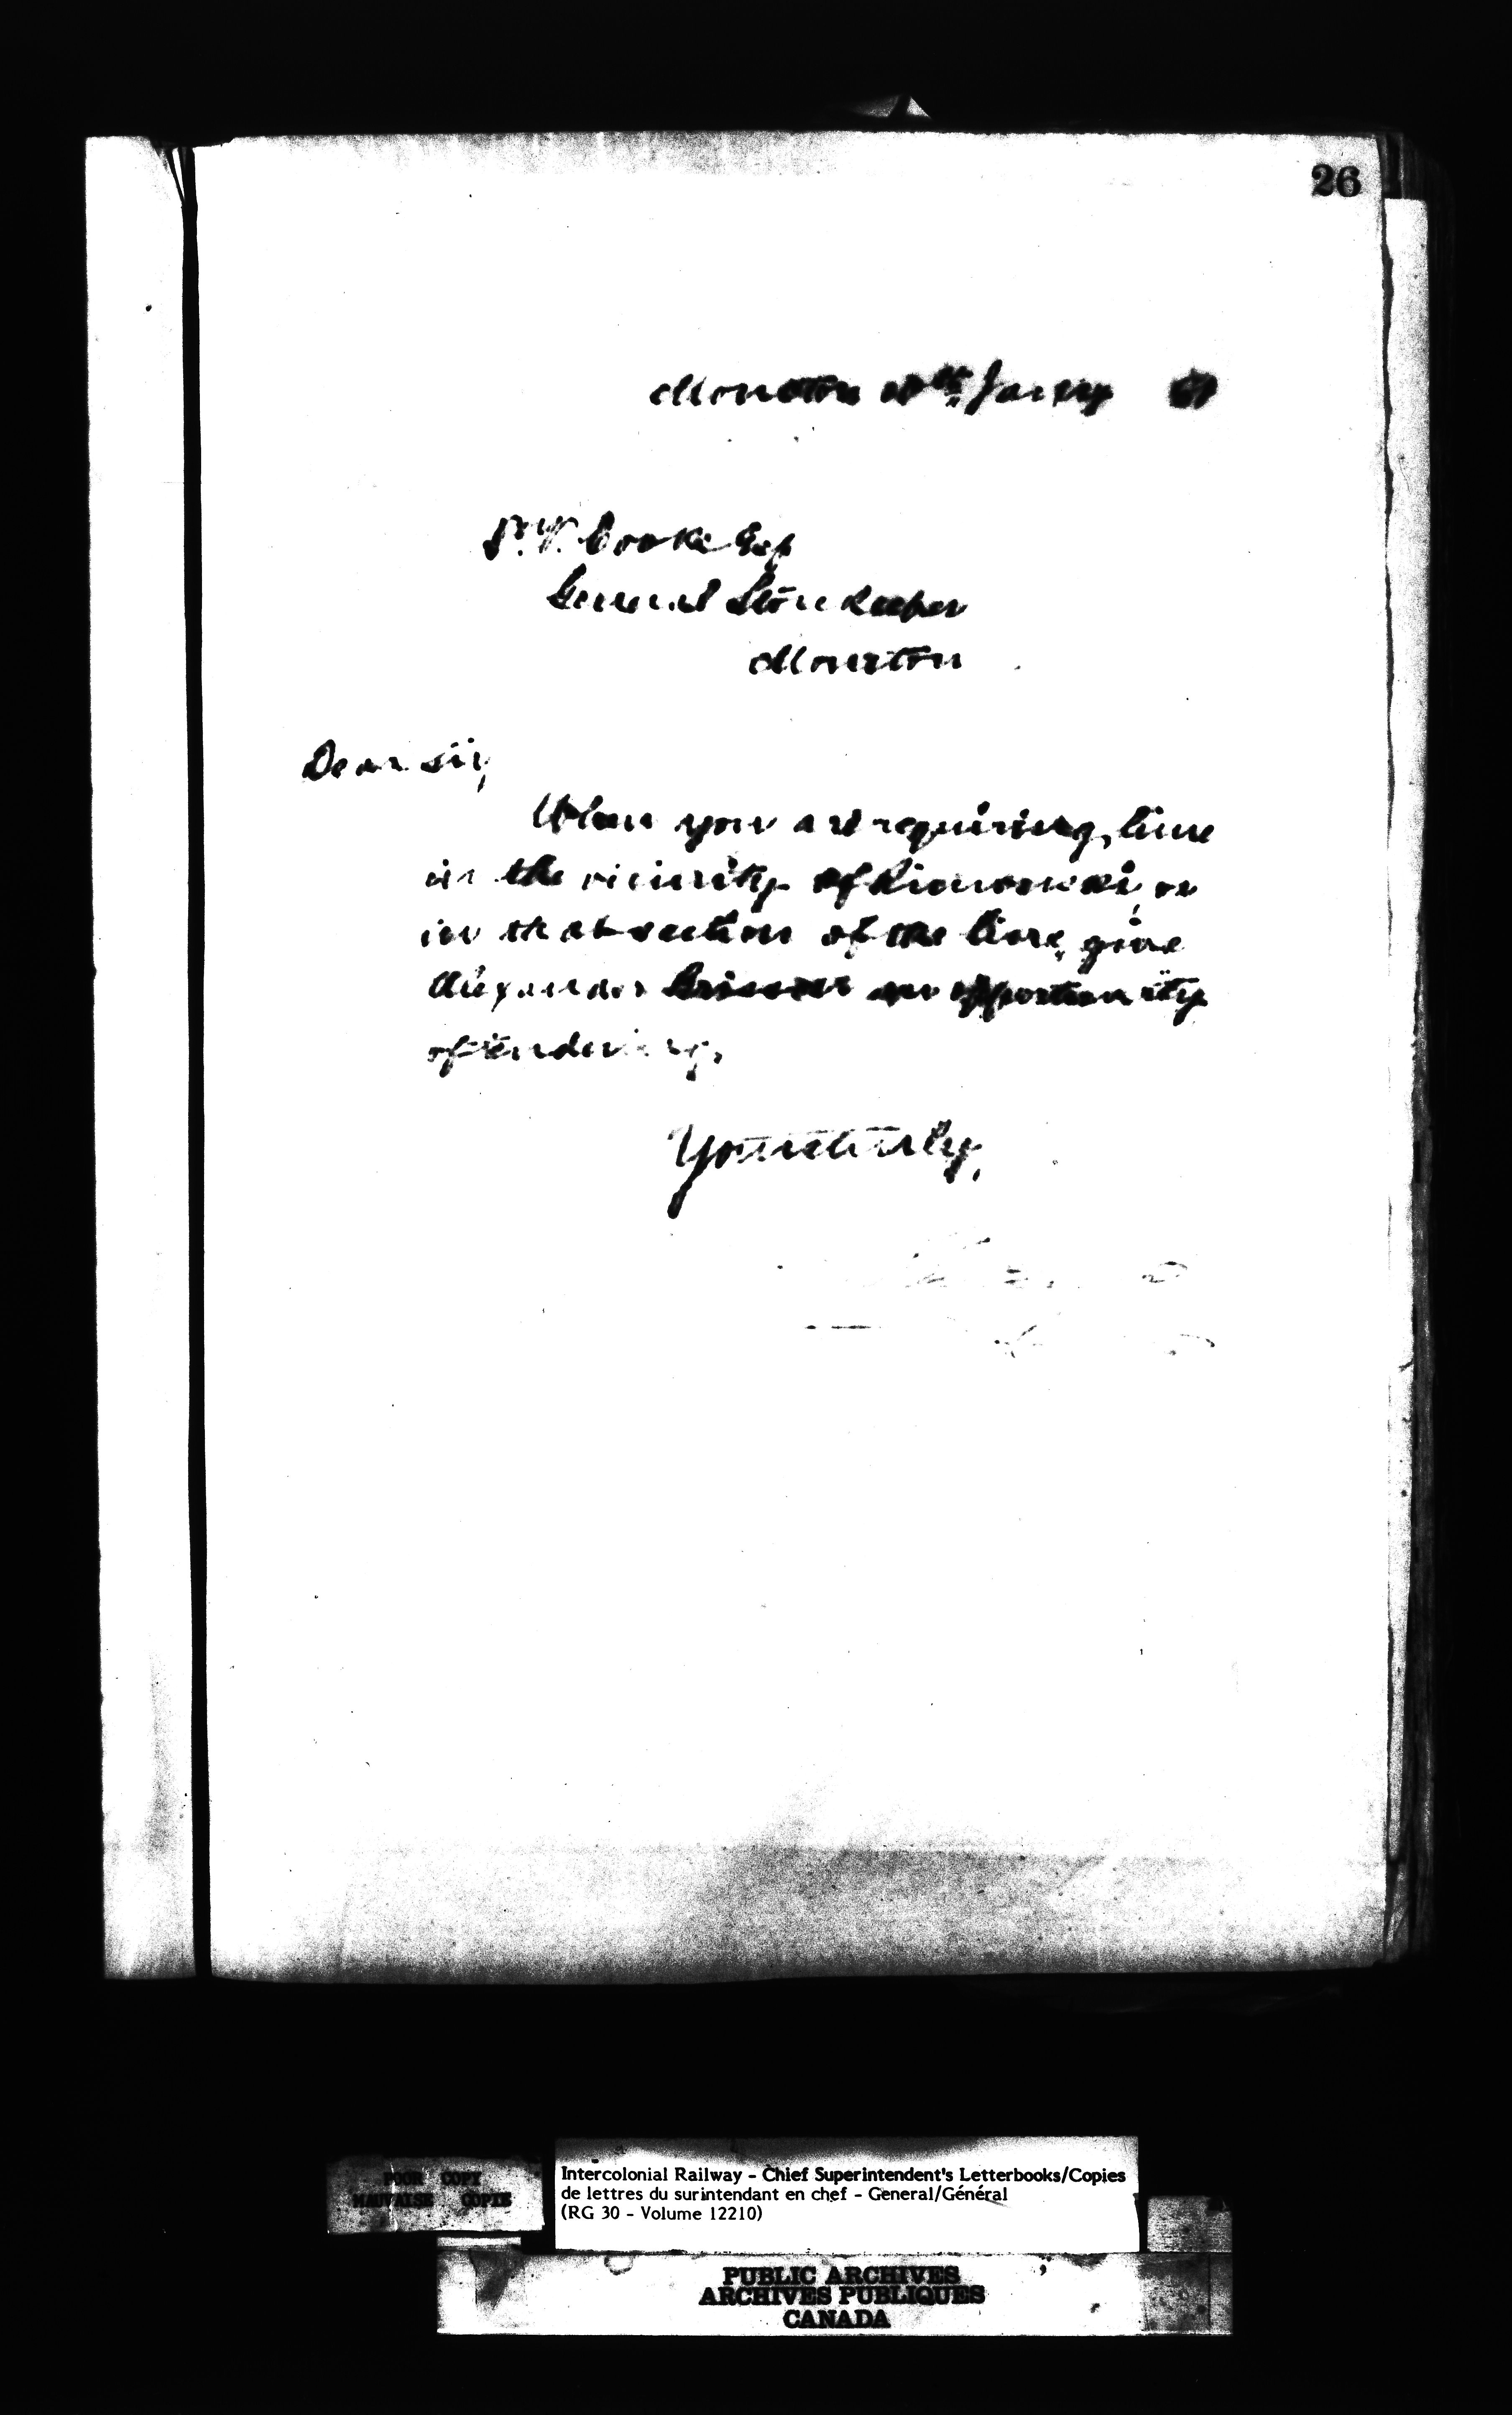 26
Moncton Jany
Cooke Esq
General Store Keeper
Moncton
Dear Sir,
When you are requiring, lime
in the vicinity of Rimouski, or
in that section of the line, give
Alexander an opportunity
of tendering,
Yours truly,
POOR COPY
MAUVAISE COPIE
Intercolonial Railway - Chief Superintendent's Letterbooks/Copies
de lettres du surintendant en chef - General/Général
(RG 30 - Volume 12210)
PUBLIC ARCHIVES
ARCHIVES PUBLIQUES
CANADA